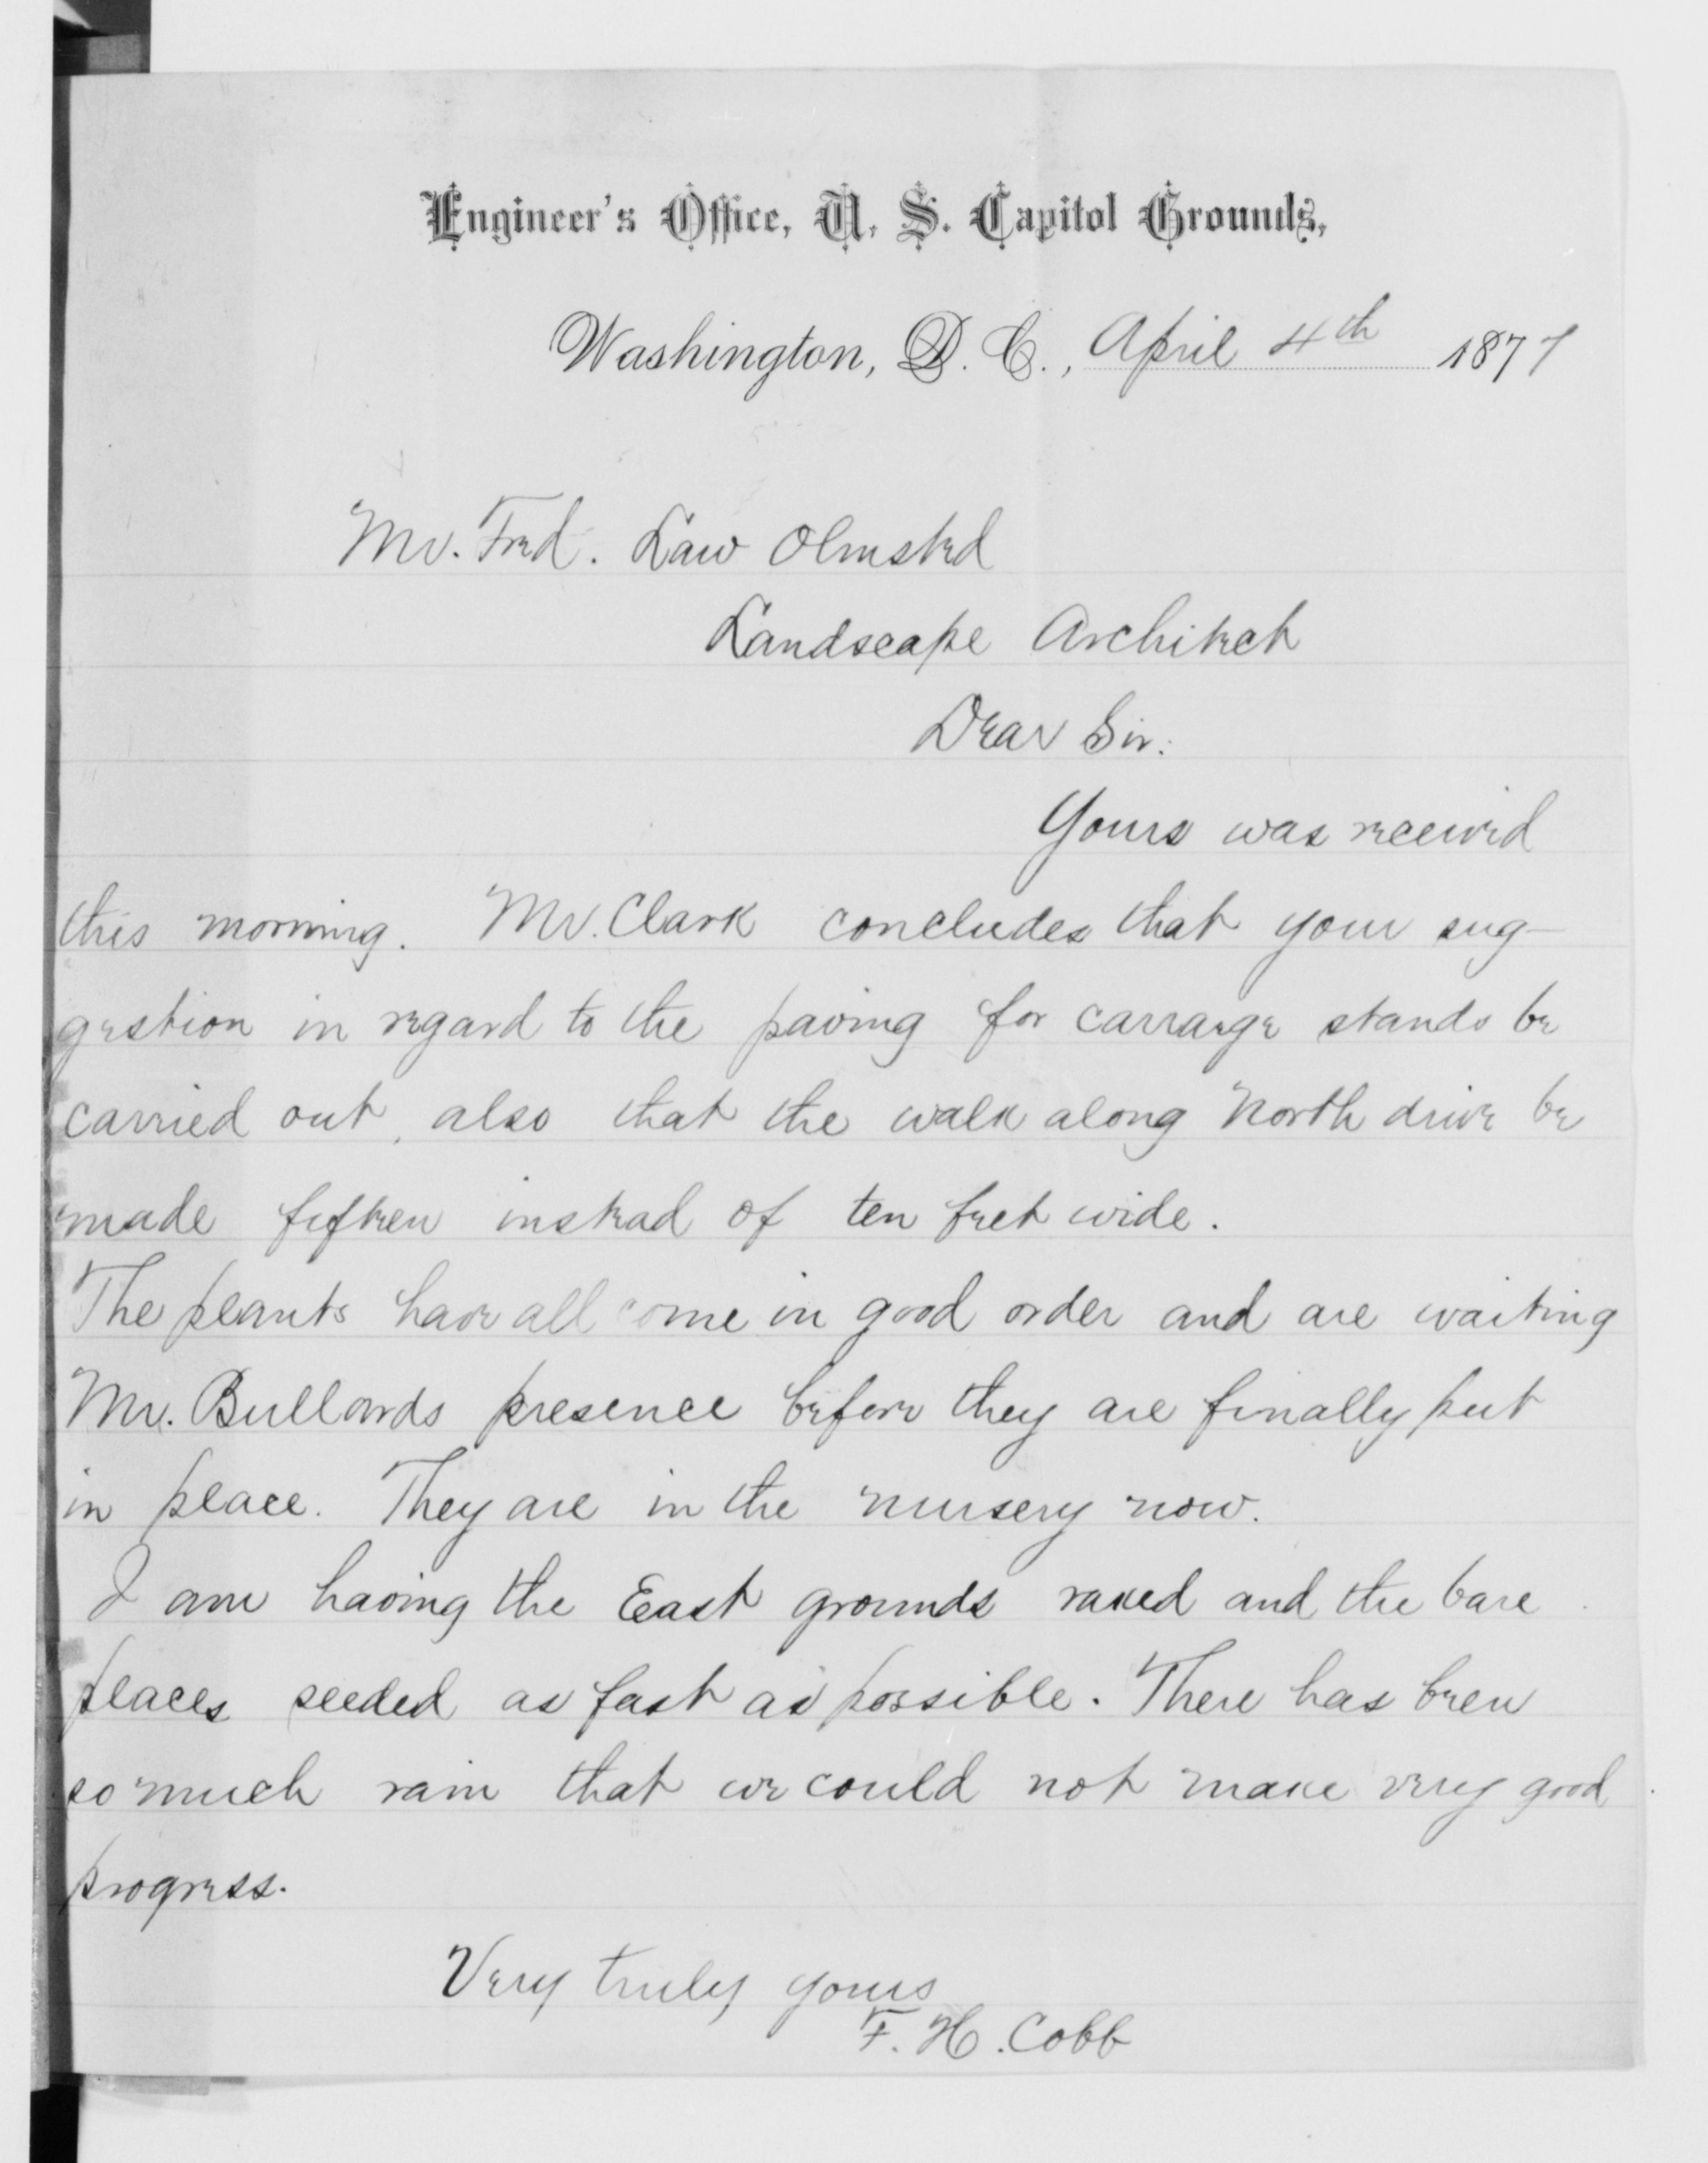 Engineer's Office, U. S. Capitol Grounds,
Washington, D. C., April 4th 1877
Mr. Fred. Law Olmsted
Landscape Architect
Dear Sir:
Yours was received
this morning. Mr. Clark concludes that your sug-
gestion in regard to the paving for carraege stands be
carried out, also that the walk along North drive be
made fifteen instead of ten feet wide.
The plants have all come in good order and are waiting
Mr. Bullards presence before they are finally put
in place. They are in the nursery now.
I am having the East grounds raked and the bare
places seeded as fast as possible. There has been
so much rain that we could not make very good
progress.
Very truly yours
F. H. Cobb